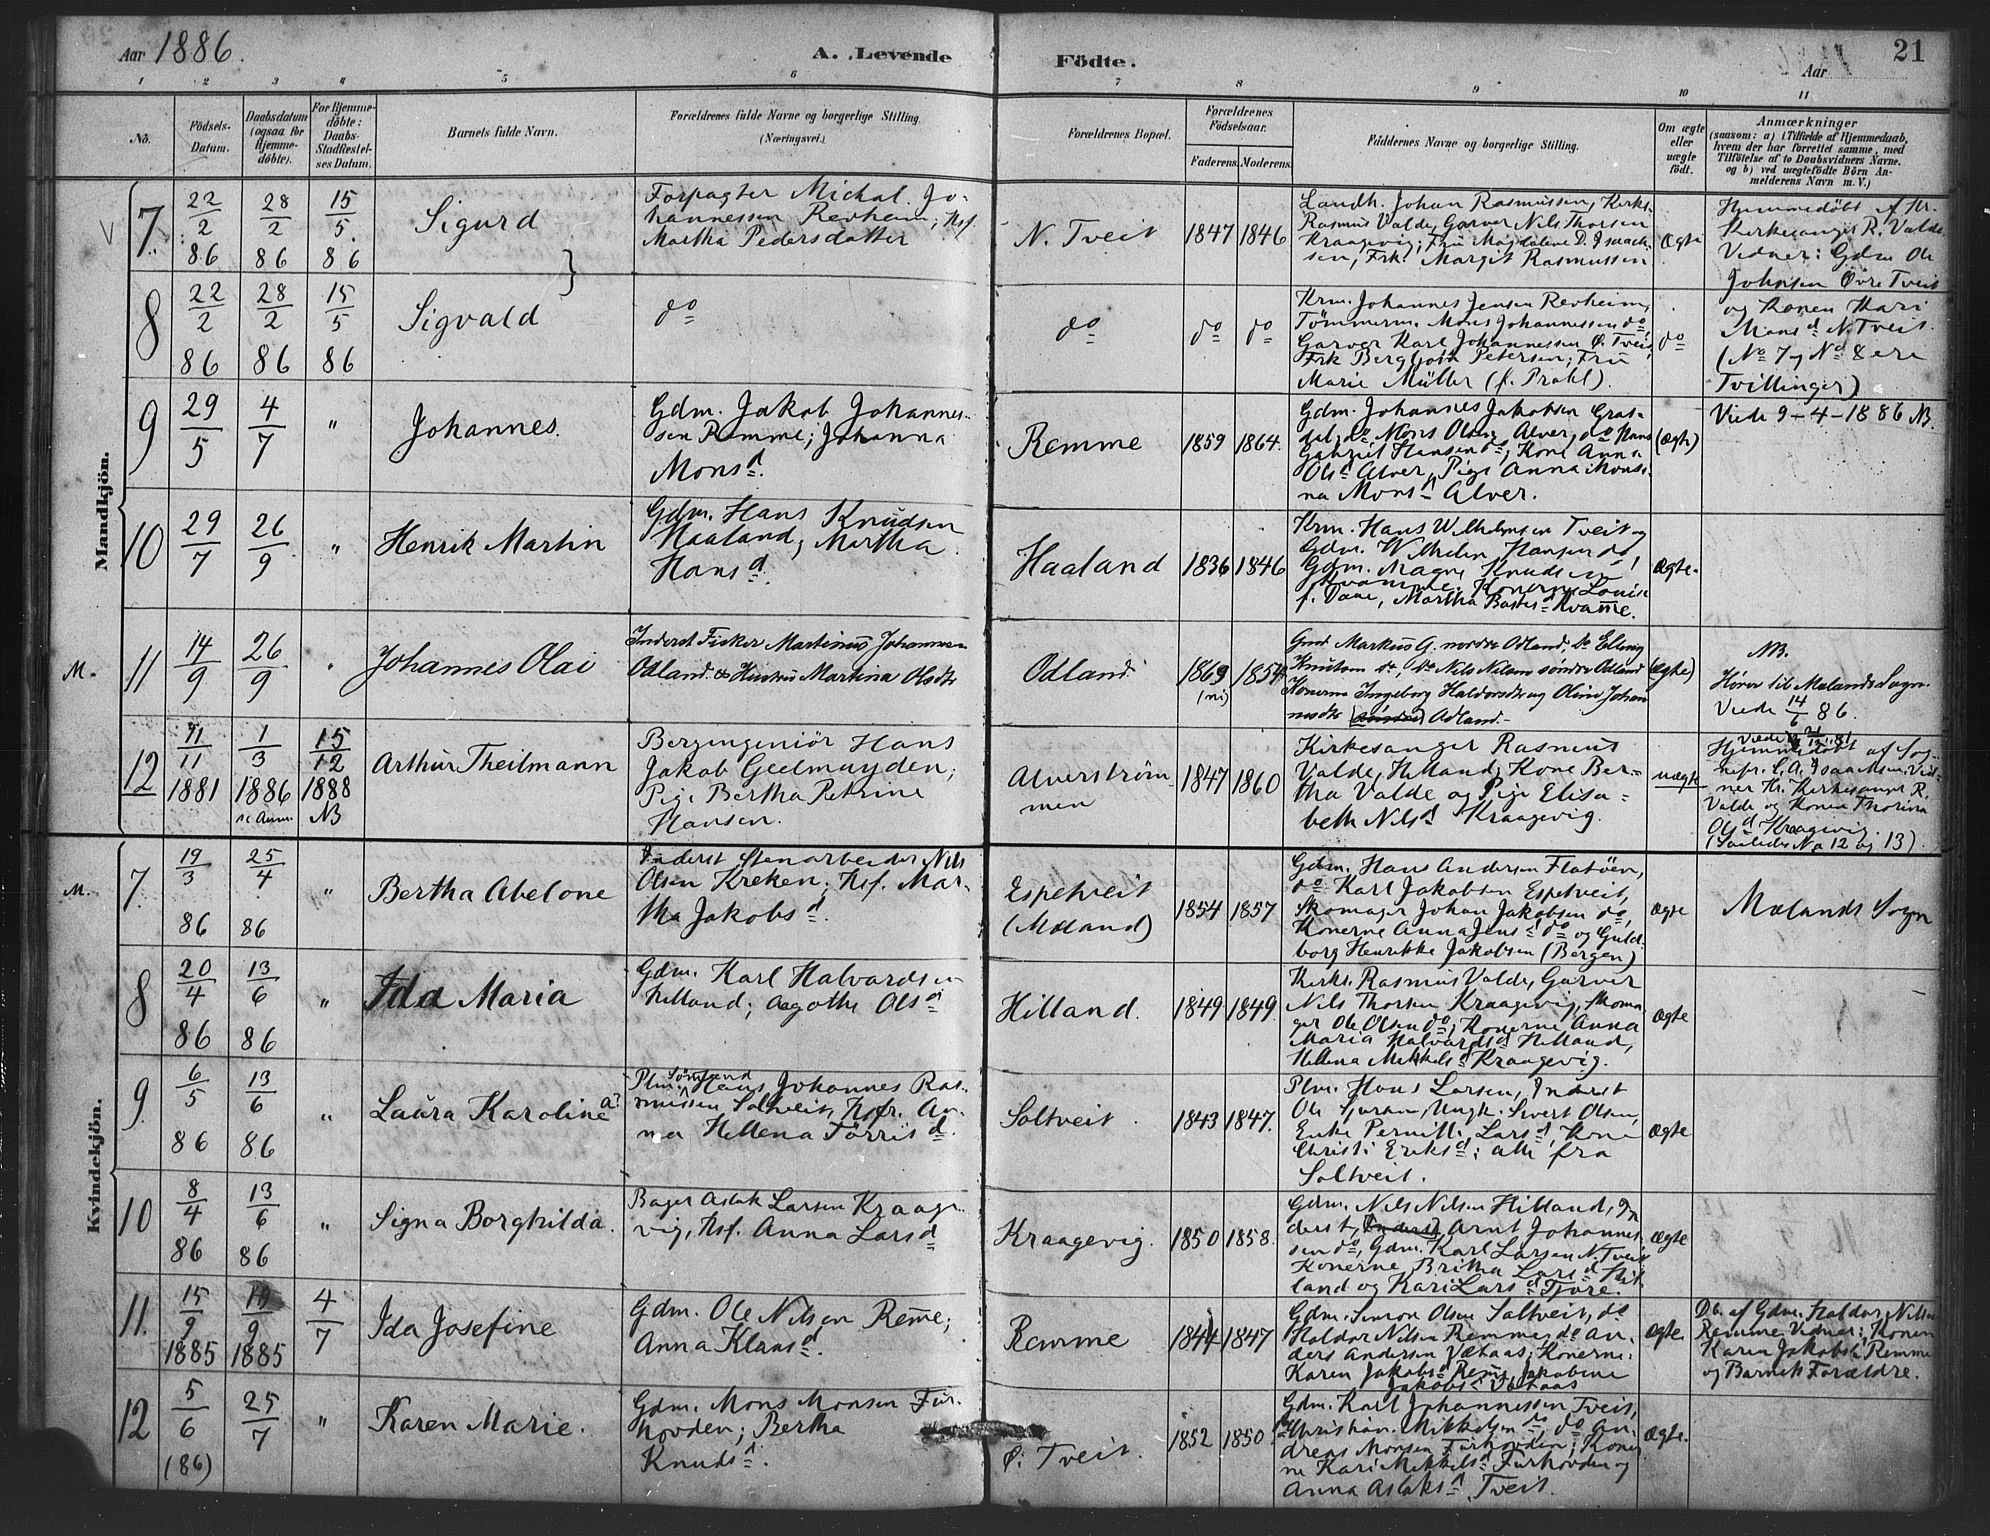 Aar 1886.
A. Levende
Födte.
Aar
21
1 2 3 4 5 6 7 8 9 10 11
No.
Födsels-
Datum.
Daabsdatum
(ogsaa for
Hjemme-
döbte).
For Hjemme-
döbte:
Daabs-
Stadfæstel-
ses Datum.
Barnets fulde Navn.
Forældrenes fulde Navne og borgerlige Stilling.
(Næringsvei.)
Forældrenes Bopæl.
Forældrenes
Födselsaar.
Faderens. Moderens.
Faddernes Navne og borgerlige Stilling.
Om ægte
eller
uægte
födt.
Anmærkninger
(saasom: a) i Tilfælde af Hjemmedaab,
hvem der har forrettet samme, med
Tilföielse af to Daabsvidners Navne.
og b) ved uægtefödte Börn An-
melderens Navn m. V.)
Mandkjön.
7
22/2 86
28/2 86
15/5 86
Sigurd
Forpagter Michal Jo-
hannessen Revheim; Hsf.
Martha Pedersdatter
N. Tveit
1847
1846
Landh. Johan Rasmussen, Kirks.
Rasmus Valde, Garver Nils Thorsen
Kraagevig; Fru Magdalene D. Isaach-
sen, Frk. Margit Rasmussen
Ægte
Hjemmedöbt af Hr.
Kirkesanger R. Valde
Vidner: Gdm Ole
Johnsen Övre Tveit
og Konen Kari
Mons d N. Tveit.
(No 7 og No 8 ere
Tvillinger)
8
22/2 86
28/2 86
15/5 86
Sigvald
do
do
do
do
Krm. Johannes Jensen Revheim,
Tömmerm. Mons Johannessen do,
Garver Karl Johannessen Ö. Tveit,
Frk Bergljot Petersen; Fru
Marie Müller (f. Prahl).
do
9
29/5
4/7
"
Johannes.
Gdm. Jakob Johannes-
sen Remme; Johanna
Mons d.
Remme
1859
1864.
Gdm. Johannes Jakobsen Gras-
dal, do Mons Olsen Alver, do Hans
Gabriel Hansen do, Kone Anna
Ols d Alver, Pige Anna Mons.
na Mons d Alver.
(Ægte)
Viede 9-4-1886 NB.
10
29/7
26/9
"
Henrik Martin
Gdm. Hans Knudsen
Haaland, Martha
Hans d.
Haaland
1836
1846
Krm. Hans Wilhelmsen Tveit og
Gdm. Wilhelm Hansen do
Gdm. Magne Knudsen
Kvamme. Konerne Louise
f. Dane, Martha Kvamme.
Ægte.
M.
11
14/9
26/9
Johannes Olai
Inderst Fisker Martinus Johannesen
Odland & Hustru Martina Olsdtr
Odland
1863
1854
Gmd Markus G. nordre Odland, do Elling
Knutsen do, do Nils Nilsen söndre Odland
Konerne Ingeborg Haldorsdtr og Oline Johan
nesdtr Odland.-
(Ægte)
NB.
Hörer til Mælands Sogn.
Viede 14/6 86.
12
11/11 1881
1/3 1886
15/12 1888
NB
Arthur Theilmann
Bergingeniör Hans
Jakob Geelmuyden;
Pige Bertha Petrine
Hansen.
Alverström-
men
1847
1860
Kirkesanger Rasmus
Valde, Helland, Kone Ber-
tha Valde og Pige Elisa-
beth Nils d Kraagevig.
uægte
Hjemmedöbt af Sog-
nepr. C. A. Isaachsen, Vid-
ner Hr. Kirkesanger R.
Valde og Konen Thorina
Ols d Kraagevig.
(Saaledes No 12 og 13).
Kvindekjön.
M.
7
19/3 86
25/4 86
"
Bertha Abelone
Inderst Stenarbeider Nils
Olsen Kreken; Hsf. Mar-
tha Jakobs d.
Espetveit
(Mæland)
1854
1857
Gdm. Hans Andersen Flatöen,
do Karl Jakobsen Espetveit,
Skomager Johan Jakobsen do,
Konerne Anna Jens d do og Guld-
borg Henrikke Jakobsen (Bergen)
Ægte
Mælands Sogn
8
20/4 86
13/6 86
"
Ida Maria
Gdm. Karl Halvardsen
Helland; Aagothe Ols d
Hilland.
1849
1849.
Kirks. Rasmus Valde, Garver
Nils Thorsen Kraagevig, Skoma
ger Ole Olsen do; Konerne Anna
Maria Halvards d Helland,
Hellena Mikkels d Kraagevig.
Ægte
9
6/5 86
13/6 86
"
Laura Karoline
Plm. Sömænd Hans Johannes Ras-
mussen Soltveit, Hsfr. An-
na Hellena Törris d.
Soltveit.
1843
1847.
Plm. Hans Larsen, Inderst
Ole Sjursen, Ungk. Sivert Olsen,
Enke Pernille Lars d, Kone
Christi Eriks d; alle fra
Soltveit.
Ægte
10
8/4 86
13/6 86
"
Signa Borghilda.
Bager Aslak Larsen Kraage-
vig, Hsf. Anna Lars d
Kraagevig.
1850
1858.
Gdm. Nils Nilsen Hilland, In
derst, Arnt Johannes
sen do, Gdm. Karl Larsen N. Tveit
Konerne Britha Lars d Hil
land og Kari Lars d Fjöre.
Ægte
11.
15/9 1885
19/9 1885
4/7
Ida Josefine
Gdm. Ole Nilsen Remme;
Anna Klaus d.
Remme
1844
1847
Gdm. Simon Olsen Soltveit, do
Haldor Nilsen Remme, do An-
ders Andersen Vætaas; Konerne:
Karen Jakobs d Remme, Jakobine
Jakobs d Vætaas
Ægte.
Db. af Gdm. Haldor Nilsen
Remme. Vidner: Konen
Karen Jakobs d Remme
og Barnets Forældre.
12
5/6 (86)
25/7
"
Karen Marie.
Gdm. Mons Monsen Fur-
hovden; Bertha
Knuds d.
Ö. Tveit.
1852
1850
Gdm. Karl Johannessen Tveit,
Christian Mikkelsen do do An-
dreas Monsen Furhovden; Koner
ne Kari Mikkels d Furhovden og
Anna Aslaks d Tveit.
Ægte.